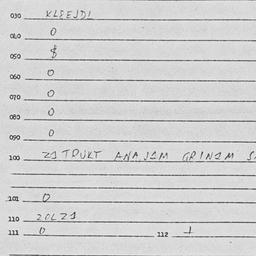 030 KLEEJDI
040 0
050 $
060 0
070 0
080 0
090 0
100 ZSTRUKT ANAJSM GRINSM
101 0
110 20LZ1
111 0 112 1